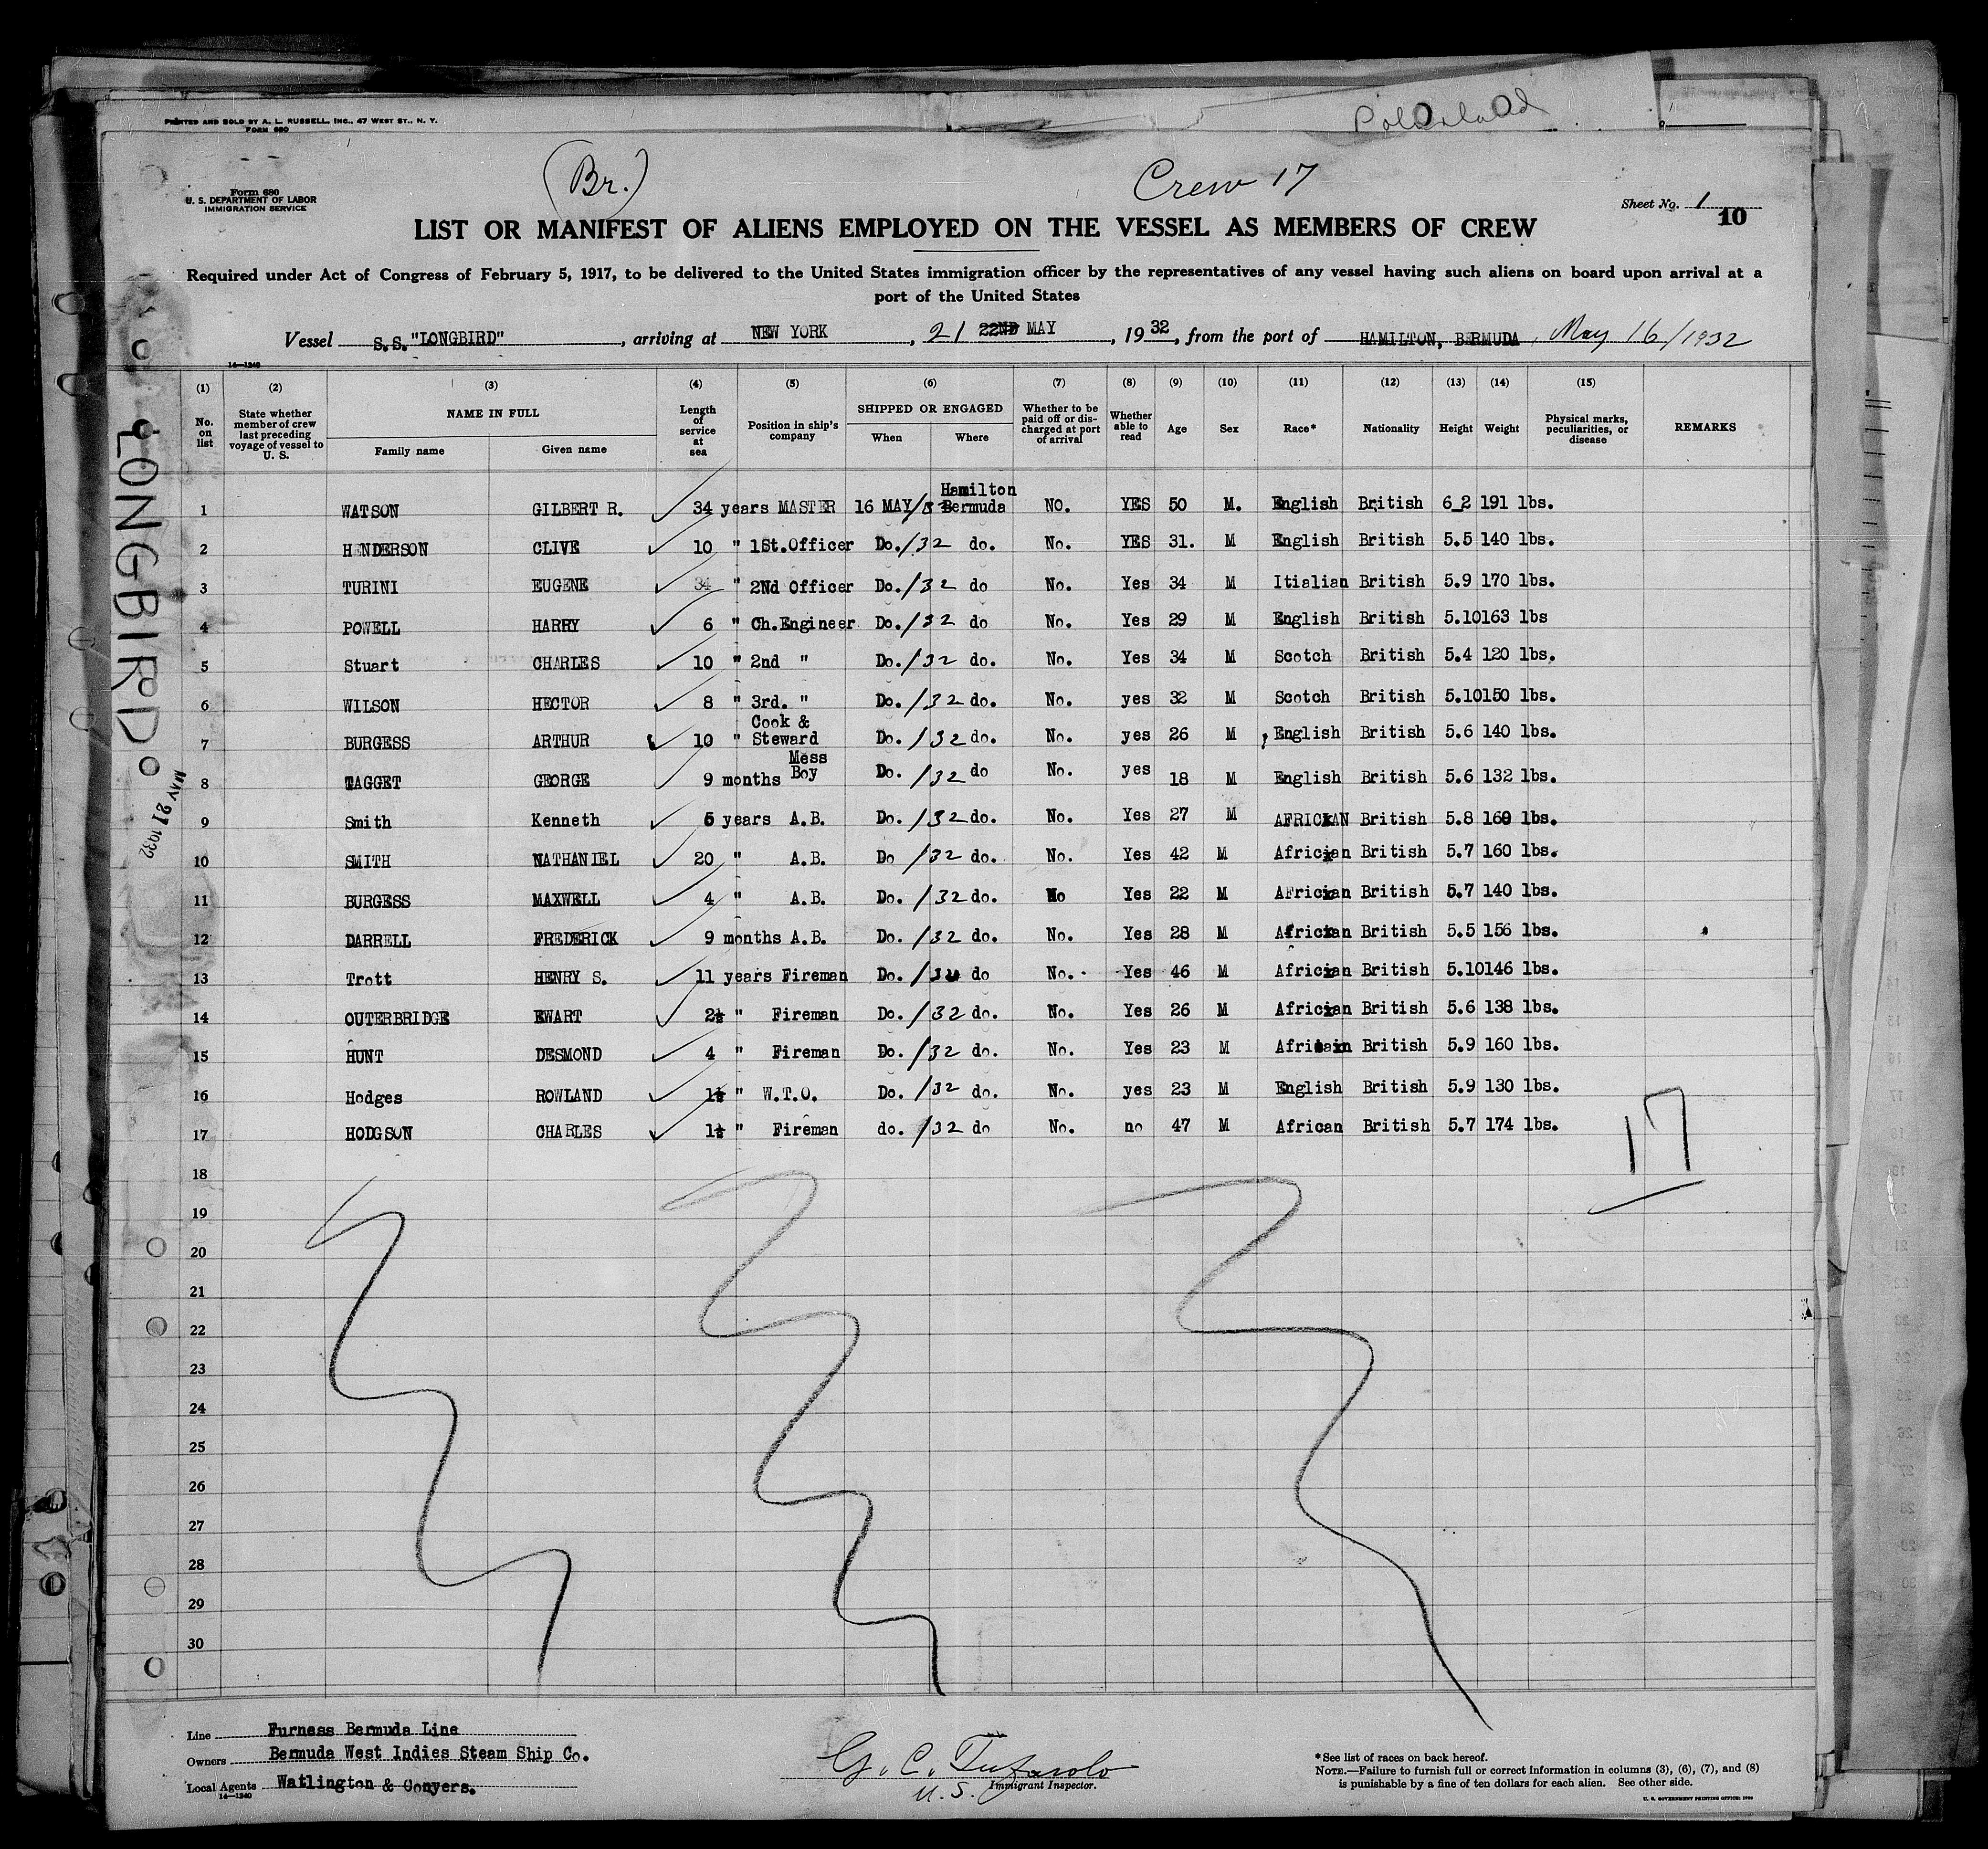 PRINTED AND SOLD BY A. L. RUSSELL, INC., 47 WEST ST., N. Y.
FORM 680
(Br.)
Crew 17
Form 680
U. S. DEPARTMENT OF LABOR
IMMIGRATION SERVICE
Sheet No. 1
10
LIST OR MANIFEST OF ALIENS EMPLOYED ON THE VESSEL AS MEMBERS OF CREW
Required under Act of Congress of February 5, 1917, to be delivered to the United States immigration officer by the representatives of any vessel having such aliens on board upon arrival at a
port of the United States
Vessel S.S."LONGBIRD", arriving at NEW YORK, 21 22ND MAY, 1932, from the port of HAMILTON, BERMUDA, May 16/1932
14—1240
(1) (2) (3) (4) (5) (6) (7) (8) (9) (10) (11) (12) (13) (14) (15)
No. on list
State whether member of crew last preceding voyage of vessel to U. S.
NAME IN FULL
Family name Given name
Length of service at sea
Position in ship's company
SHIPPED OR ENGAGED
When Where
Whether to be paid off or discharged at port of arrival
Whether able to read
Age Sex Race* Nationality Height Weight
Physical marks, peculiarities, or disease
REMARKS
1 WATSON GILBERT R. 34 years MASTER 16 MAY/32 Hamilton Bermuda NO. YES 50 M. English British 6_2 191 lbs.
2 HENDERSON CLIVE 10 " 1St.Officer Do./32 do. No. YES 31. M English British 5.5 140 lbs.
3 TURINI EUGENE 34 " 2Nd Officer Do./32 do No. Yes 34 M Itialian British 5.9 170 lbs.
4 POWELL HARRY 6 " Ch.Engineer Do./32 do No. Yes 29 M English British 5.10 163 lbs
5 Stuart CHARLES 10 " 2nd " Do./32 do. No. Yes 34 M Scotch British 5.4 120 lbs.
6 WILSON HECTOR 8 " 3rd. " Do./32 do. No. yes 32 M Scotch British 5.10 150 lbs.
7 BURGESS ARTHUR 10 " Cook & Steward Do./32 do. No. yes 26 M English British 5.6 140 lbs.
8 TAGGET GEORGE 9 months Mess Boy Do./32 do No. yes 18 M English British 5.6 132 lbs.
9 Smith Kenneth 5 years A.B. Do./32 do. No. Yes 27 M AFRICAN British 5.8 160 lbs.
10 SMITH NATHANIEL 20 " A.B. Do /32 do. No. Yes 42 M African British 5.7 160 lbs.
11 BURGESS MAXWELL 4 " A.B. Do./32 do. No Yes 22 M AFrican British 5.7 140 lbs.
12 DARRELL FREDERICK 9 months A.B. Do./32 do. No. Yes 28 M African British 5.5 156 lbs.
13 Trott HENRY S. 11 years Fireman Do./32 do No. Yes 46 M African British 5.10 146 lbs.
14 OUTERBRIDGE EWART 2½ " Fireman Do./32 do. No. Yes 26 M African British 5.6 138 lbs.
15 HUNT DESMOND 4 " Fireman Do./32 do. No. Yes 23 M British 5.9 160 lbs.
16 Hodges ROWLAND 1½ " W.T.O. Do./32 do. No. yes 23 M English British 5.9 130 lbs.
17 HODGSON CHARLES 1½ " Fireman do./32 do No. no 47 M African British 5.7 174 lbs.
17
18
19
20
21
22
23
24
25
26
27
28
29
30
LONGBIRD
MAY 21 1932
Line Furness Bermuda Line
Owners Bermuda West Indies Steam Ship Co.
Local Agents Watlington & Conyers.
14—1240
G. C. Tufarolo
U. S. Immigrant Inspector.
*See list of races on back hereof.
NOTE.—Failure to furnish full or correct information in columns (3), (6), (7), and (8)
is punishable by a fine of ten dollars for each alien. See other side.